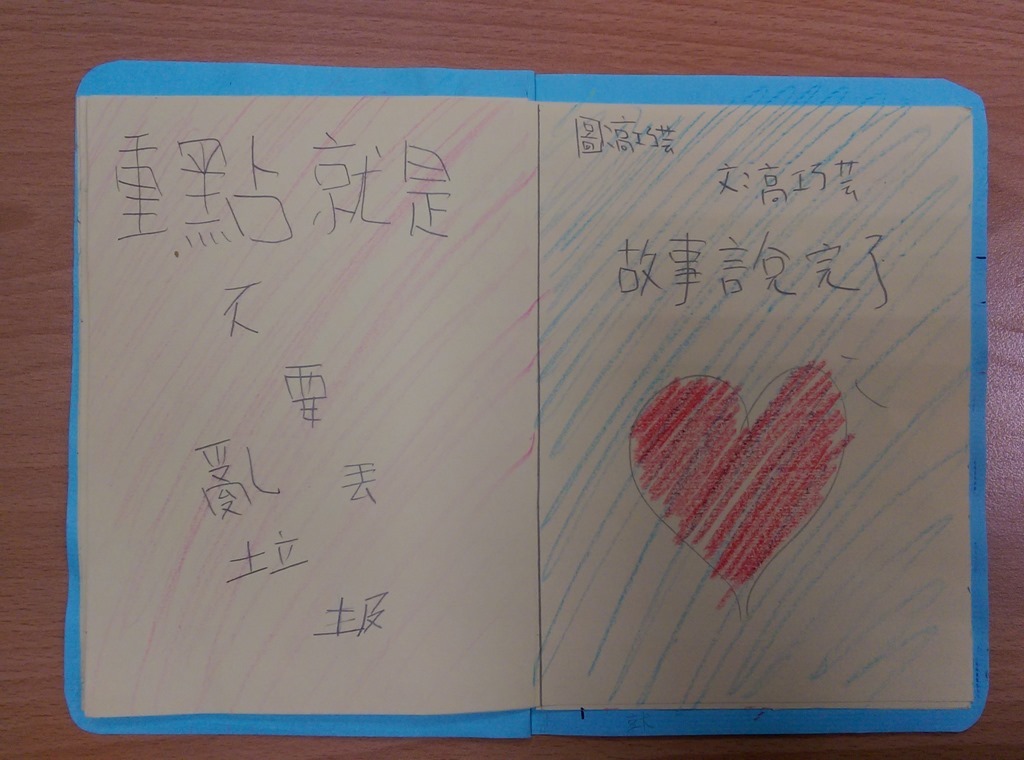 重點就是
不
要
亂丟
垃
圾
圖:高巧芸
文:高巧芸
故事說完了